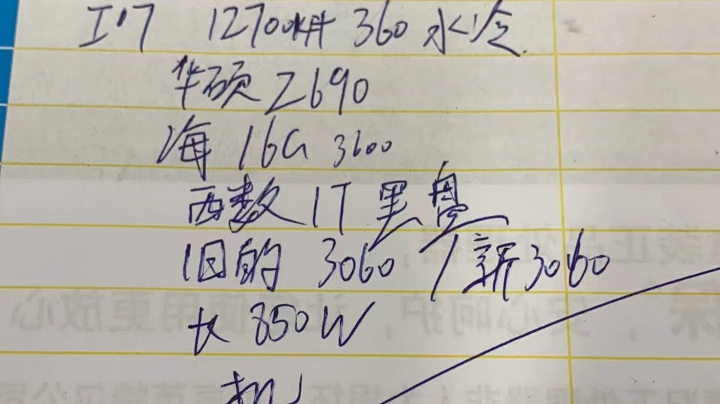 I'7 12700KF 360 水冷
华硕 Z690
海 16G 3600
西数 1T 黑盘
旧的 3060 / 新3060
长 850W
机